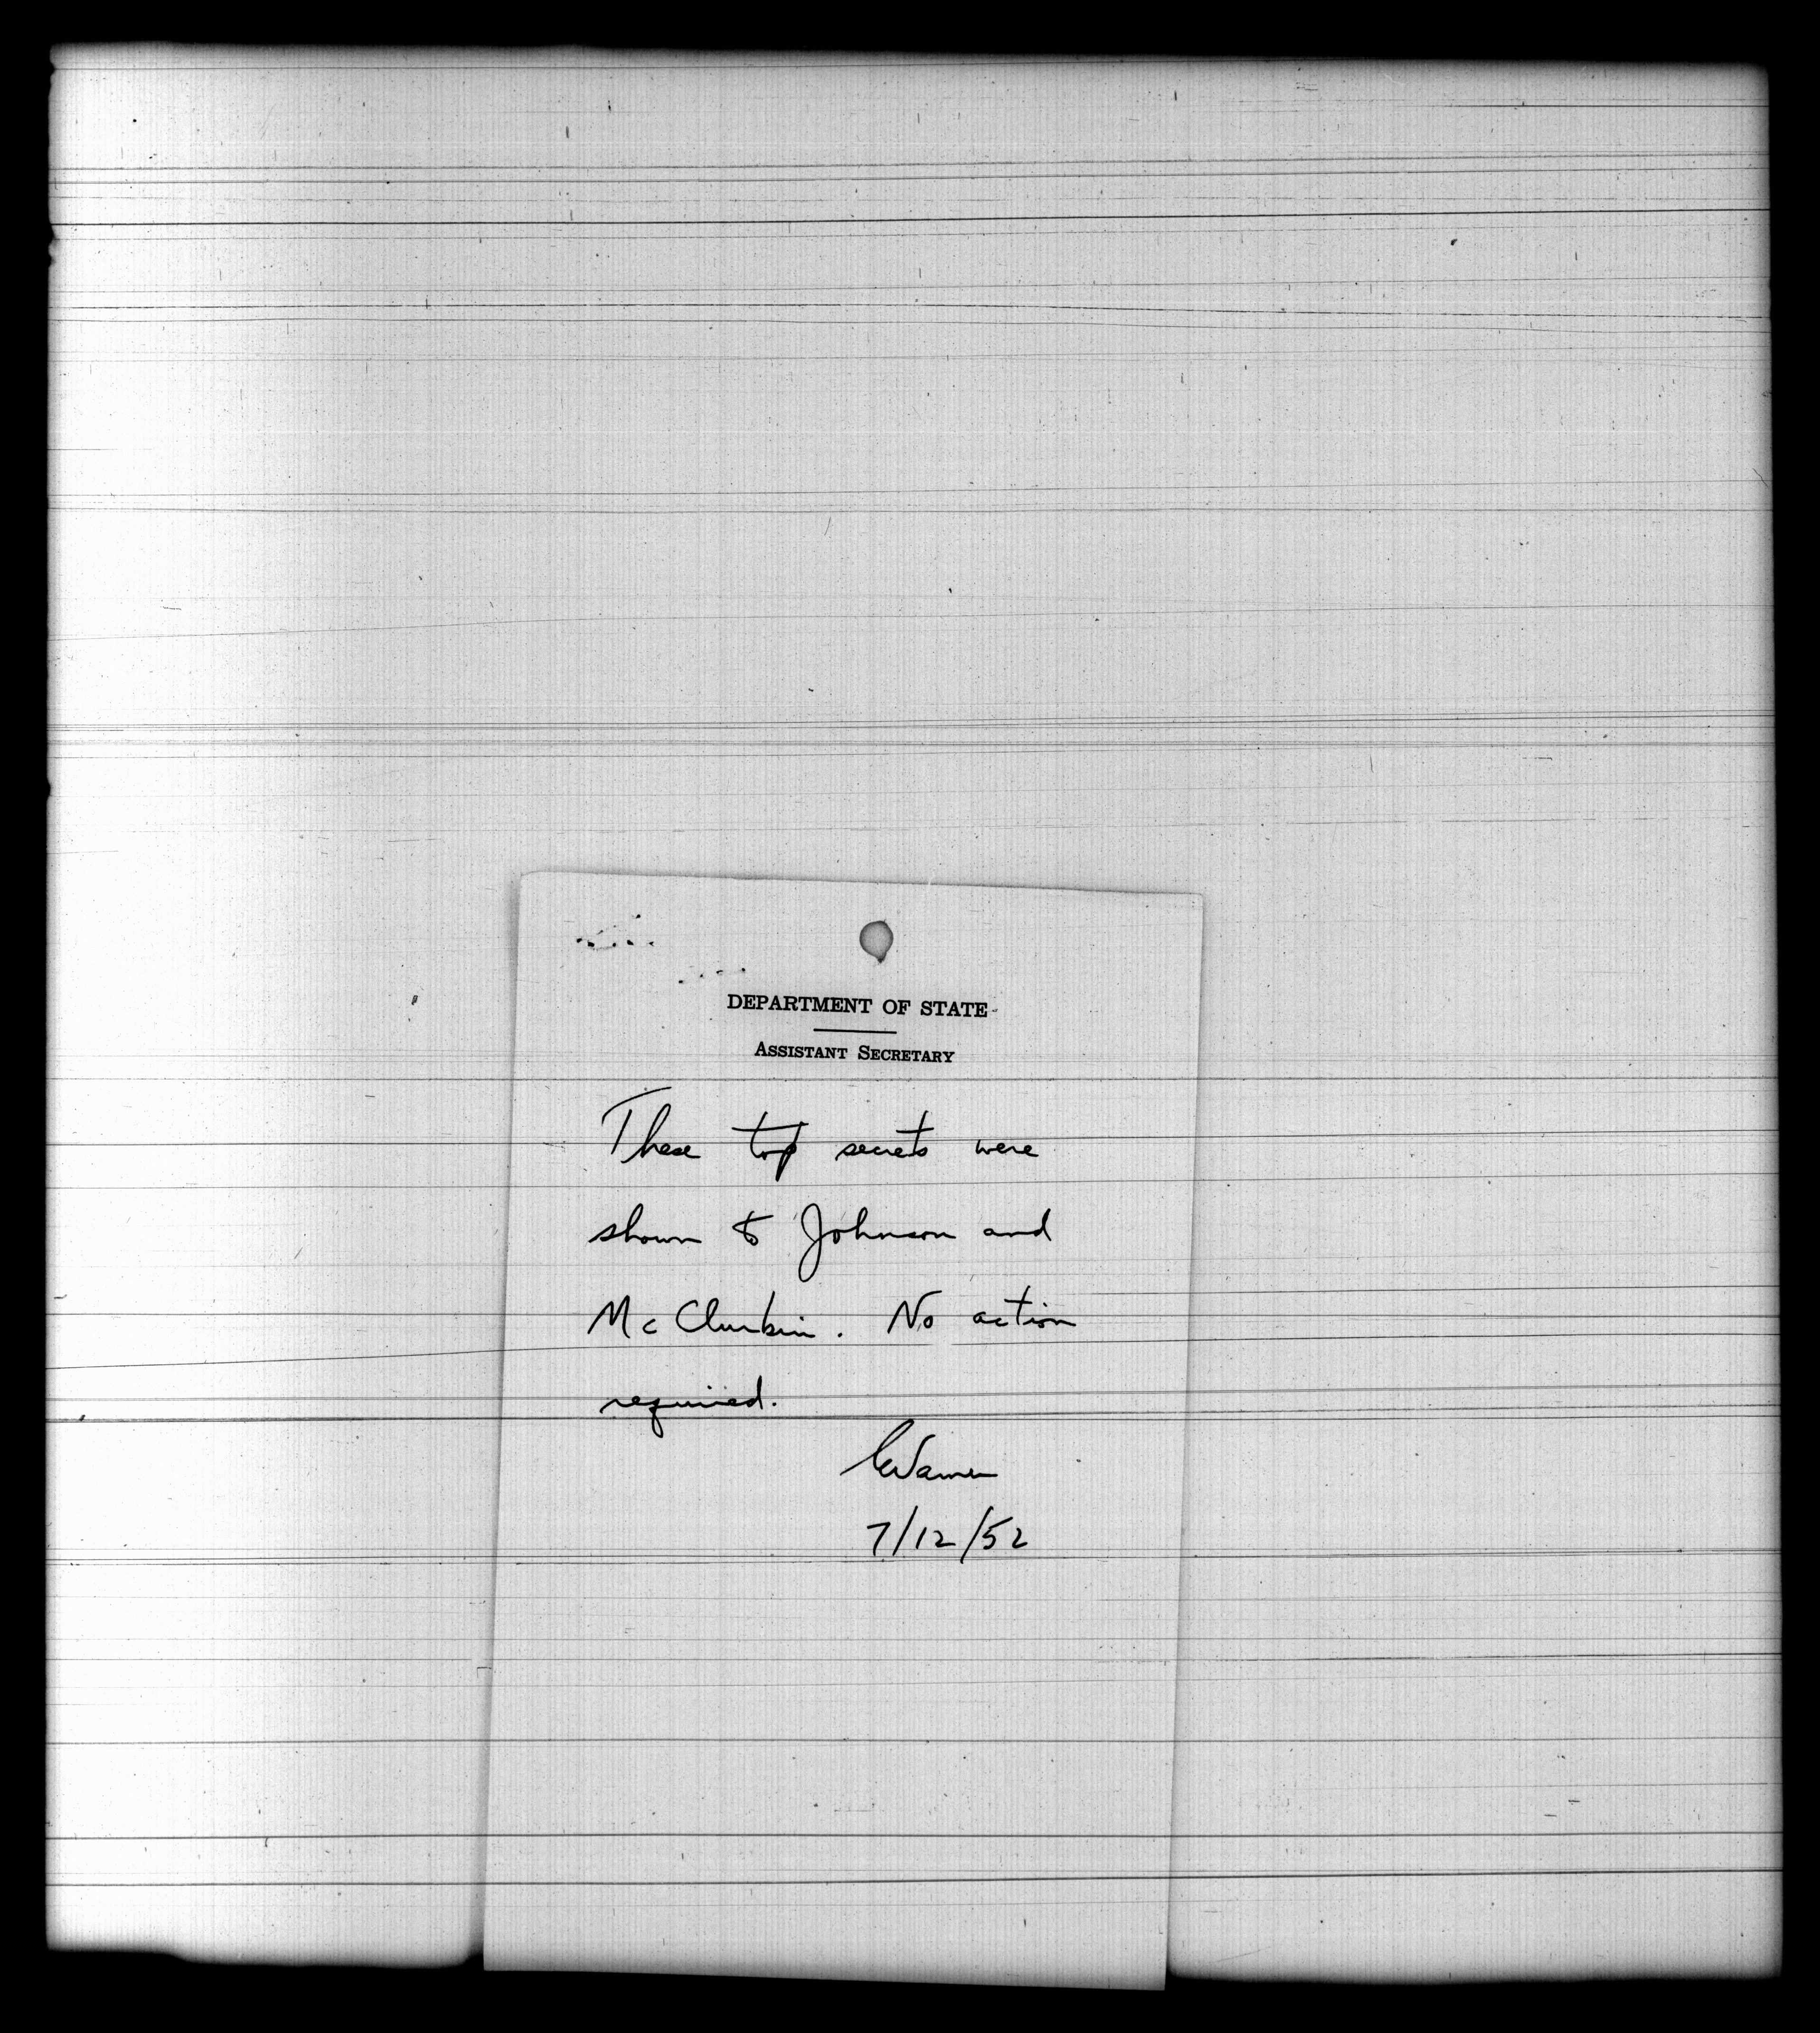 DEPARTMENT OF STATE
ASSISTANT SECRETARY
These top secrets were
shown to Johnson and
McClurkin. No action
required.
7/12/52